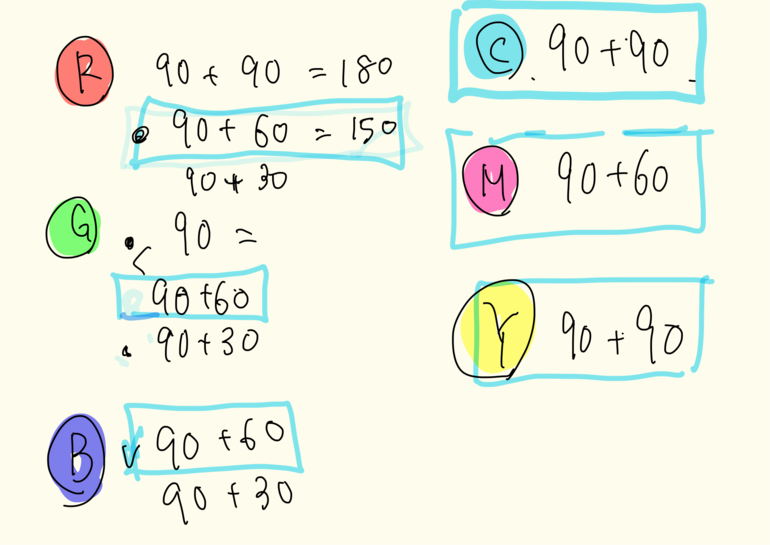 R 90 + 90 = 180
90 + 60 = 150
90 + 30
G 90 =
90 + 60
90 + 30
B 90 + 60
90 + 30
C 90 + 90
M 90 + 60
Y 90 + 90